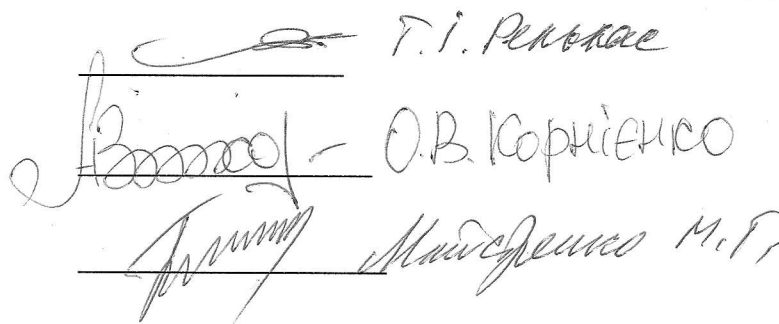 Т.І. Ренькас
О.В. Корнієнко
Майстренко М.Г.